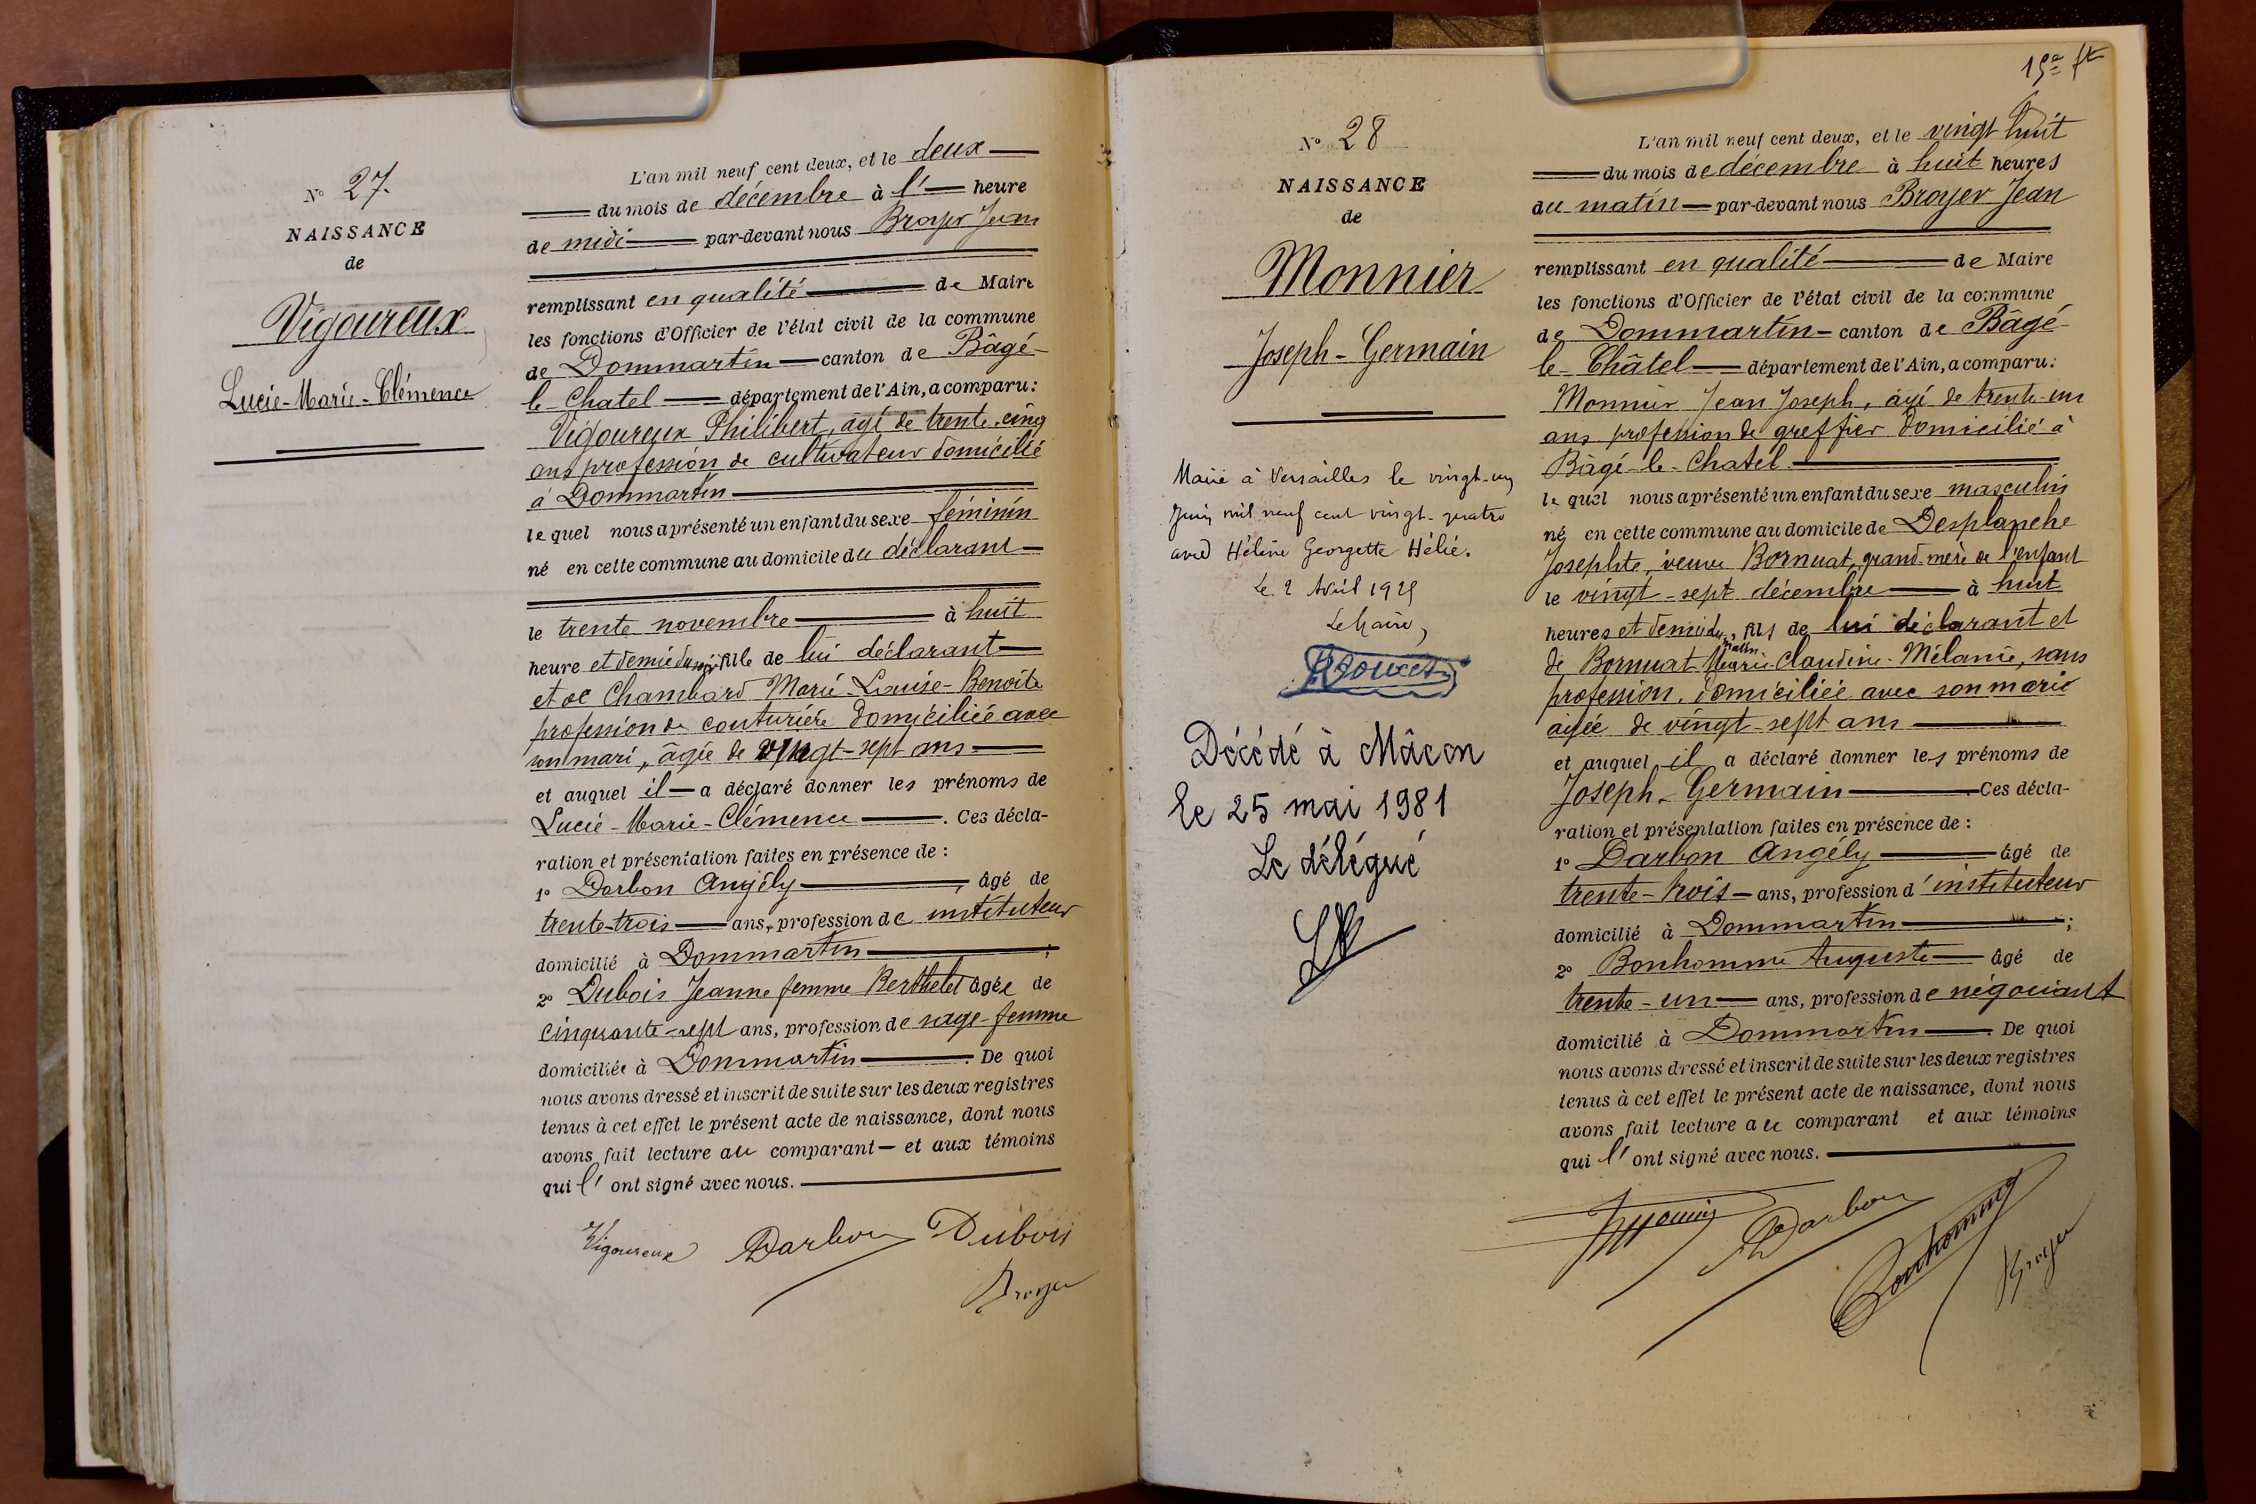 N° 27.
NAISSANCE
de
Vigoureux
Lucie-Marie-Clémence
L'an mil neuf cent deux, et le deux
du mois de décembre à l' heure
de midi par-devant nous Broyer Jean
remplissant en qualité de Maire
les fonctions d'Officier de l'état civil de la commune
de Dommartin canton de Bâgé-
le-Chatel département de l'Ain, a comparu:
Vigoureux Philibert, âgé de trente-cinq
ans profession de cultivateur domicilié
à Dommartin
lequel nous a présenté un enfant du sexe féminin
né en cette commune au domicile du déclarant
le trente novembre à huit
heure et demie du fille de lui déclarant
et de Chambard Marie-Louise-Benoite
profession de couturière domiciliée avec
son mari, âgée de vingt-sept ans
et auquel il a déclaré donner les prénoms de
Lucie-Marie-Clémence. Ces décla-
ration et présentation faites en présence de :
1° Darbon Angély, âgé de
trente-trois ans, profession de instituteur
domicilié à Dommartin ;
2° Dubois Jeanne femme Berthelet âgée de
cinquante-sept ans, profession de sage-femme
domiciliée à Dommartin. De quoi
nous avons dressé et inscrit de suite sur les deux registres
tenus à cet effet le présent acte de naissance, dont nous
avons fait lecture au comparant et aux témoins
qui l' ont signé avec nous.
Vigoureux Darbon Dubois
Broyer
15e ft
N° 28
NAISSANCE
de
Monnier
Joseph-Germain
Marié à Versailles le vingt-un
Juin mil neuf cent vingt-quatre
avec Hélène Georgette Hélié.
Le 2 Avril 1925
Le Maire,
Décédé à Mâcon
le 25 mai 1981
Le délégué
L'an mil neuf cent deux, et le vingt huit
du mois de décembre à huit heures
du matin par-devant nous Broyer Jean
remplissant en qualité de Maire
les fonctions d'Officier de l'état civil de la commune
de Dommartin canton de Bâgé-
le-Châtel département de l'Ain, a comparu:
Monnier Jean Joseph, âgé de trente-un
ans profession de greffier domicilié à
Bâgé-le-Chatel
lequel nous a présenté un enfant du sexe masculin
né en cette commune au domicile de Desplanche
Josephte, veuve Bornuat, grand-mère de l'enfant
le vingt-sept décembre à huit
heures et demie du matin, fils de lui déclarant et
de Bornuat Marie-Claudine-Mélanie, sans
profession, domiciliée avec son marie
âgée de vingt-sept ans
et auquel il a déclaré donner les prénoms de
Joseph-Germain Ces décla-
ration et présentation faites en présence de :
1° Darbon Angély âgé de
trente-trois ans, profession d'instituteur
domicilié à Dommartin ;
2° Bonhomme Auguste âgé de
trente-un ans, profession de négociant
domicilié à Dommartin. De quoi
nous avons dressé et inscrit de suite sur les deux registres
tenus à cet effet le présent acte de naissance, dont nous
avons fait lecture au comparant et aux témoins
qui l' ont signé avec nous.
Darbon
Bonhomme Broyer